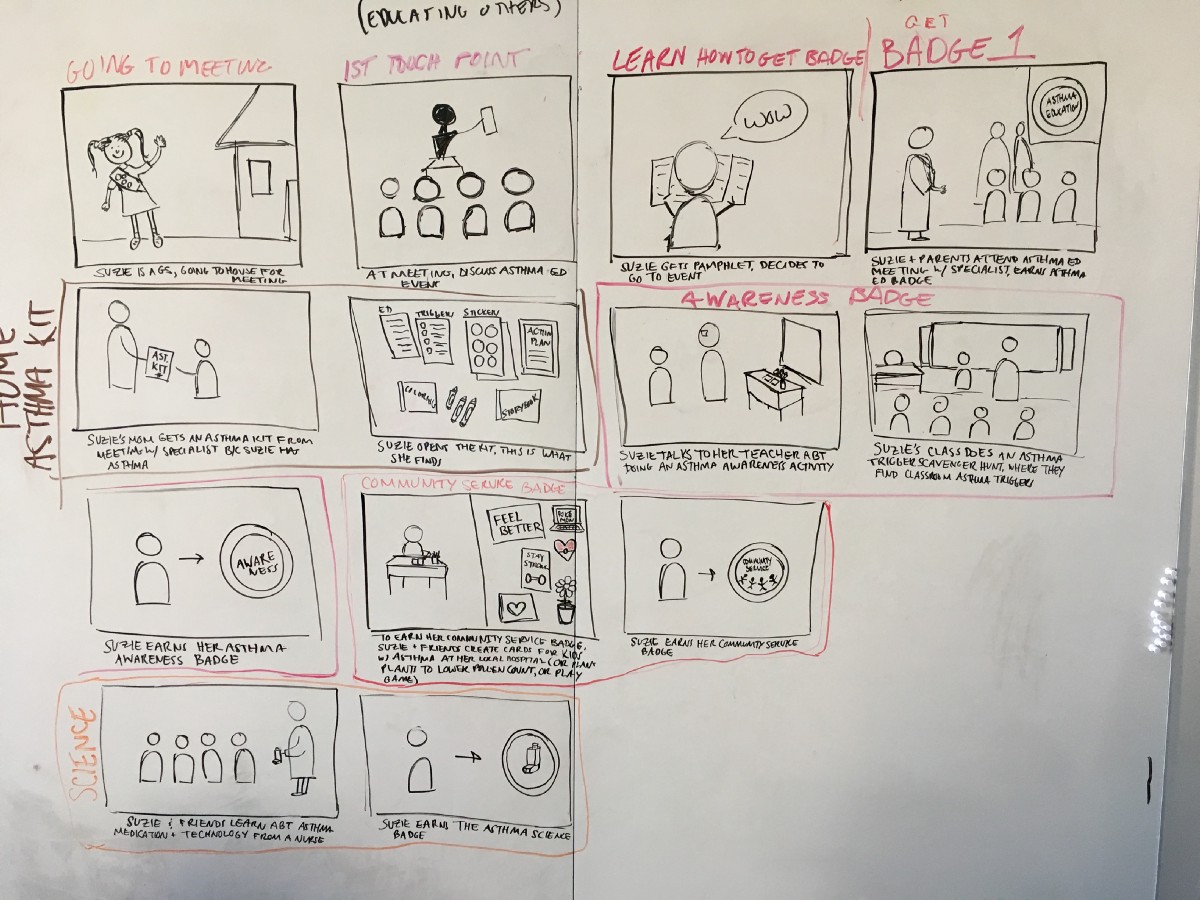 (EDUCATING OTHERS)
GOING TO MEETING
1ST TOUCH POINT
LEARN HOW TO GET BADGE
GET
BADGE 1
WOW
ASTHMA
EDUCATION
SUZIE IS A GS, GOING TO HOUSE FOR
MEETING
AT MEETING, DISCUSS ASTHMA ED
EVENT
SUZIE GETS PAMPHLET, DECIDES TO
GO TO EVENT
SUZIE + PARENTS ATTEND ASTHMA ED
MEETING W/ SPECIALIST, EARNS ASTHMA
ED BADGE
HOME
ASTHMA KIT
AST.
KIT
ED
TRIGGERS
STICKERS
ACTION
PLAN
COLORING
STORYBOOK
SUZIE'S MOM GETS AN ASTHMA KIT FROM
MEETING W/ SPECIALIST B/C SUZIE HAS
ASTHMA
SUZIE OPENS THE KIT, THIS IS WHAT
SHE FINDS
AWARENESS BADGE
SUZIE TALKS TO HER TEACHER ABT
DOING AN ASTHMA AWARENESS ACTIVITY
SUZIE'S CLASS DOES AN ASTHMA
TRIGGER SCAVENGER HUNT, WHERE THEY
FIND CLASSROOM ASTHMA TRIGGERS
AWARE
NESS
SUZIE EARNS HER ASTHMA
AWARENESS BADGE
COMMUNITY SERVICE BADGE
FEEL
BETTER
POKE
MON
STAY
STRONG
TO EARN HER COMMUNITY SERVICE BADGE,
SUZIE + FRIENDS CREATE CARDS FOR KIDS
W/ ASTHMA AT HER LOCAL HOSPITAL (OR PLANT
PLANTS TO LOWER POLLEN COUNT, OR PLAY
GAME)
COMMUNITY
SERVICE
SUZIE EARNS HER COMMUNITY SERVICE
BADGE
SCIENCE
SUZIE & FRIENDS LEARN ABT ASTHMA
MEDICATION + TECHNOLOGY FROM A NURSE
SUZIE EARNS THE ASTHMA SCIENCE
BADGE